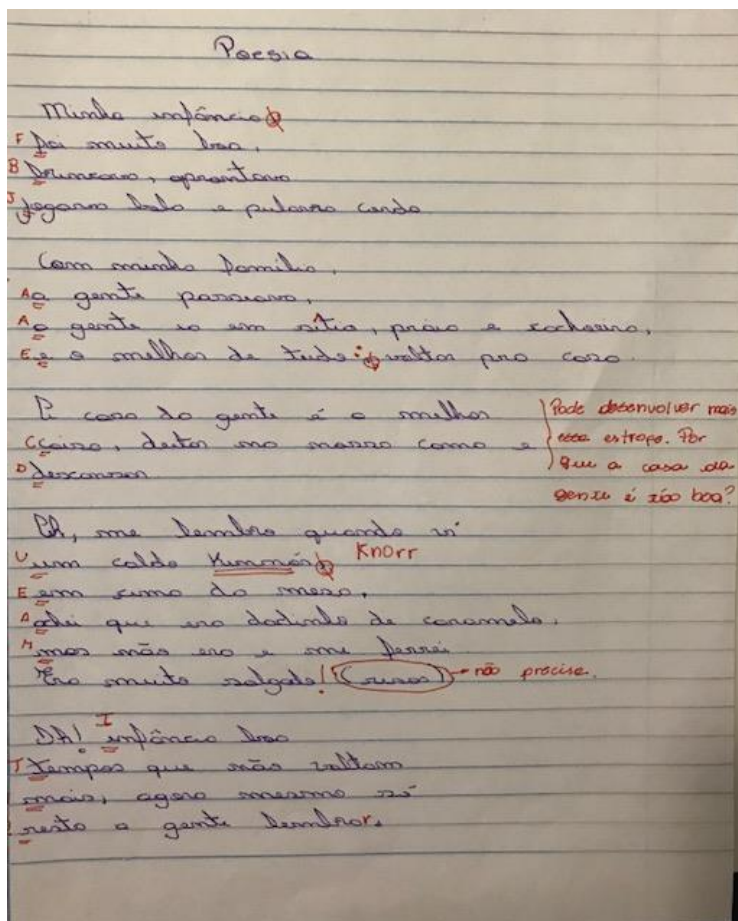 Poesia
Minha infância
F foi muito boa,
B Brincava, aprontava
J jogava bola e pulava corda
Com minha família,
A a gente passeava,
A a gente ia em sítio, praia e cachoeira,
E e o melhor de tudo: voltar pra casa.
A casa da gente é o melhor
C coisa, deitar na nossa cama e
D descansar
Pode desenvolver mais
essa estrofe. Por
que a casa da
gente é tão boa?
Ah, me lembro quando vi
U um caldo Knorr
E em cima da mesa,
A achei que era dadinho de caramelo,
M mas não era e me ferrei
Era muito salgado! (risos) não precisa.
Ah! I infância boa
T Tempos que não voltam
mais, agora mesmo só
resta a gente lembrar.